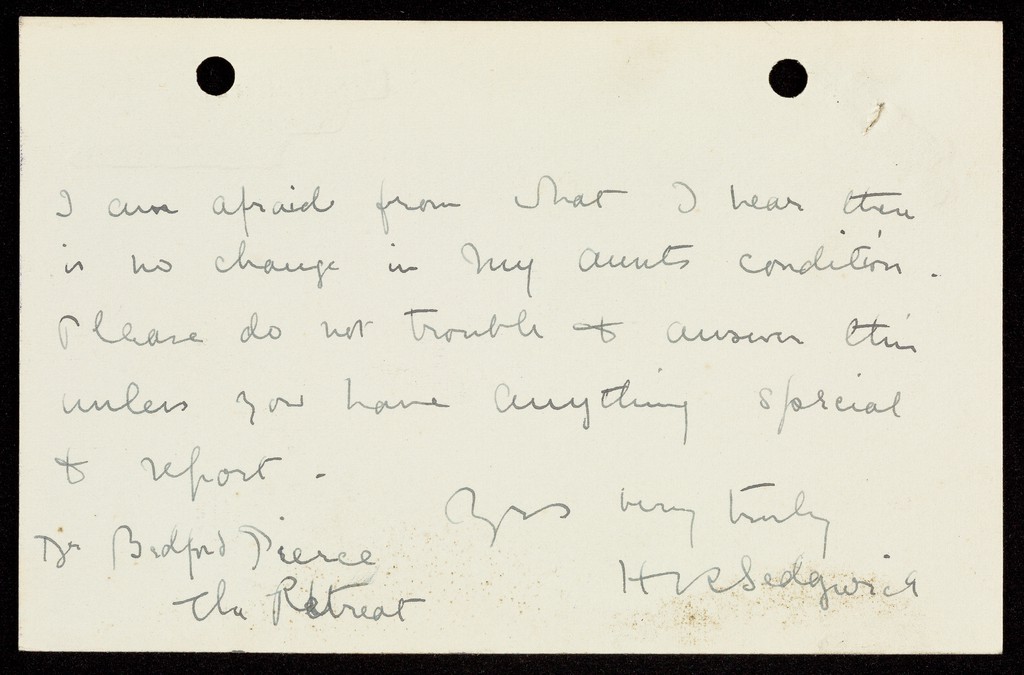 I am afraid from what I hear there
is no change in my aunts condition.
Please do not trouble to answer this
unless you have anything special
to report.
Yrs very truly
Dr Bedford Pierce
H Sedgwick
The Retreat